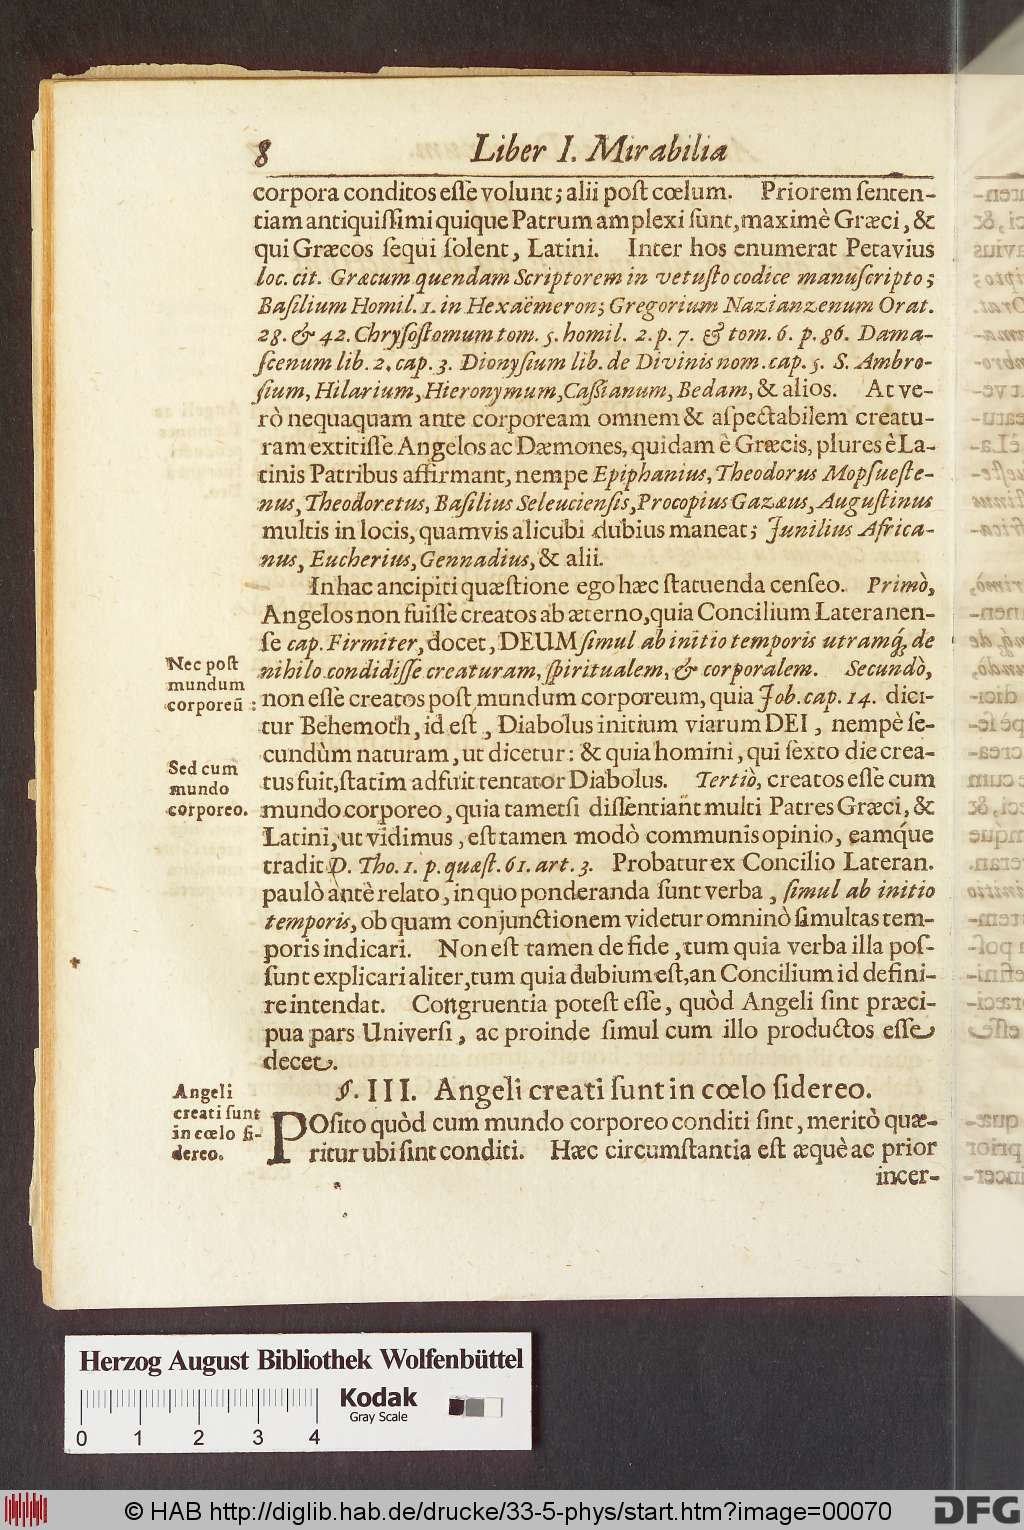 8 Liber I. Mirabilia
corpora conditos eſſe volunt; alii poſt cœlum. Priorem ſenten-
tiam antiquiſſimi quique Patrum amplexi ſunt, maximè Græci, &
qui Græcos ſequi ſolent, Latini. Inter hos enumerat Petavius
loc. cit. Græcum quendam Scriptorem in vetuſto codice manuſcripto;
Baſilium Homil. 1. in Hexaëmeron; Gregorium Nazianzenum Orat.
28. & 42. Chryſoſtomum tom. 5. homil. 2. p. 7. & tom. 6. p. 86. Dama-
ſcenum lib. 2. cap. 3. Dionyſium lib. de Divinis nom. cap. 5. S. Ambro-
ſium, Hilarium, Hieronymum, Caſſianum, Bedam, & alios. At ve-
rò nequaquam ante corpoream omnem & aſpectabilem creatu-
ram extitiſſe Angelos ac Dæmones, quidam è Græcis, plures è La-
tinis Patribus affirmant, nempe Epiphanius, Theodorus Mopſueſte-
nus, Theodoretus, Baſilius Seleucienſis, Procopius Gazæus, Auguſtinus
multis in locis, quamvis alicubi dubius maneat; Junilius Africa-
nus, Eucherius, Gennadius, & alii.
In hac ancipiti quæſtione ego hæc ſtatuenda cenſeo. Primò,
Angelos non fuiſſe creatos ab æterno, quia Concilium Lateranen-
ſe cap. Firmiter, docet, DEUM ſimul ab initio temporis utramq́; de
nihilo condidiſſe creaturam, ſpiritualem, & corporalem. Secundò,
non eſſe creatos poſt mundum corporeum, quia Job. cap. 14. dici-
tur Behemoth, id eſt, Diabolus initium viarum DEI, nempè ſe-
cundùm naturam, ut dicetur: & quia homini, qui ſexto die crea-
tus fuit, ſtatim adfuit tentator Diabolus. Tertiò, creatos eſſe cum
mundo corporeo, quia tametſi diſſentiant multi Patres Græci, &
Latini, ut vidimus, eſt tamen modò communis opinio, eamq́ue
tradit D. Tho. 1. p. quæſt. 61. art. 3. Probatur ex Concilio Lateran.
paulò antè relato, in quo ponderanda ſunt verba, ſimul ab initio
temporis, ob quam conjunctionem videtur omninò ſimultas tem-
poris indicari. Non eſt tamen de fide, tum quia verba illa poſ-
ſunt explicari aliter, tum quia dubium eſt, an Concilium id defini-
re intendat. Congruentia poteſt eſſe, quòd Angeli ſint præci-
pua pars Univerſi, ac proinde ſimul cum illo productos eſſe
decet.
§. III. Angeli creati ſunt in cœlo ſidereo.
POſito quòd cum mundo corporeo conditi ſint, meritò quæ-
ritur ubi ſint conditi. Hæc circumſtantia eſt æquè ac prior
incer-
Nec poſt
mundum
corporeũ:
Sed cum
mundo
corporeo.
Angeli
creati ſunt
in cœlo ſi-
dereo.
Herzog August Bibliothek Wolfenbüttel
Kodak
Gray Scale
0 1 2 3 4
© HAB http://diglib.hab.de/drucke/33-5-phys/start.htm?image=00070
DFG